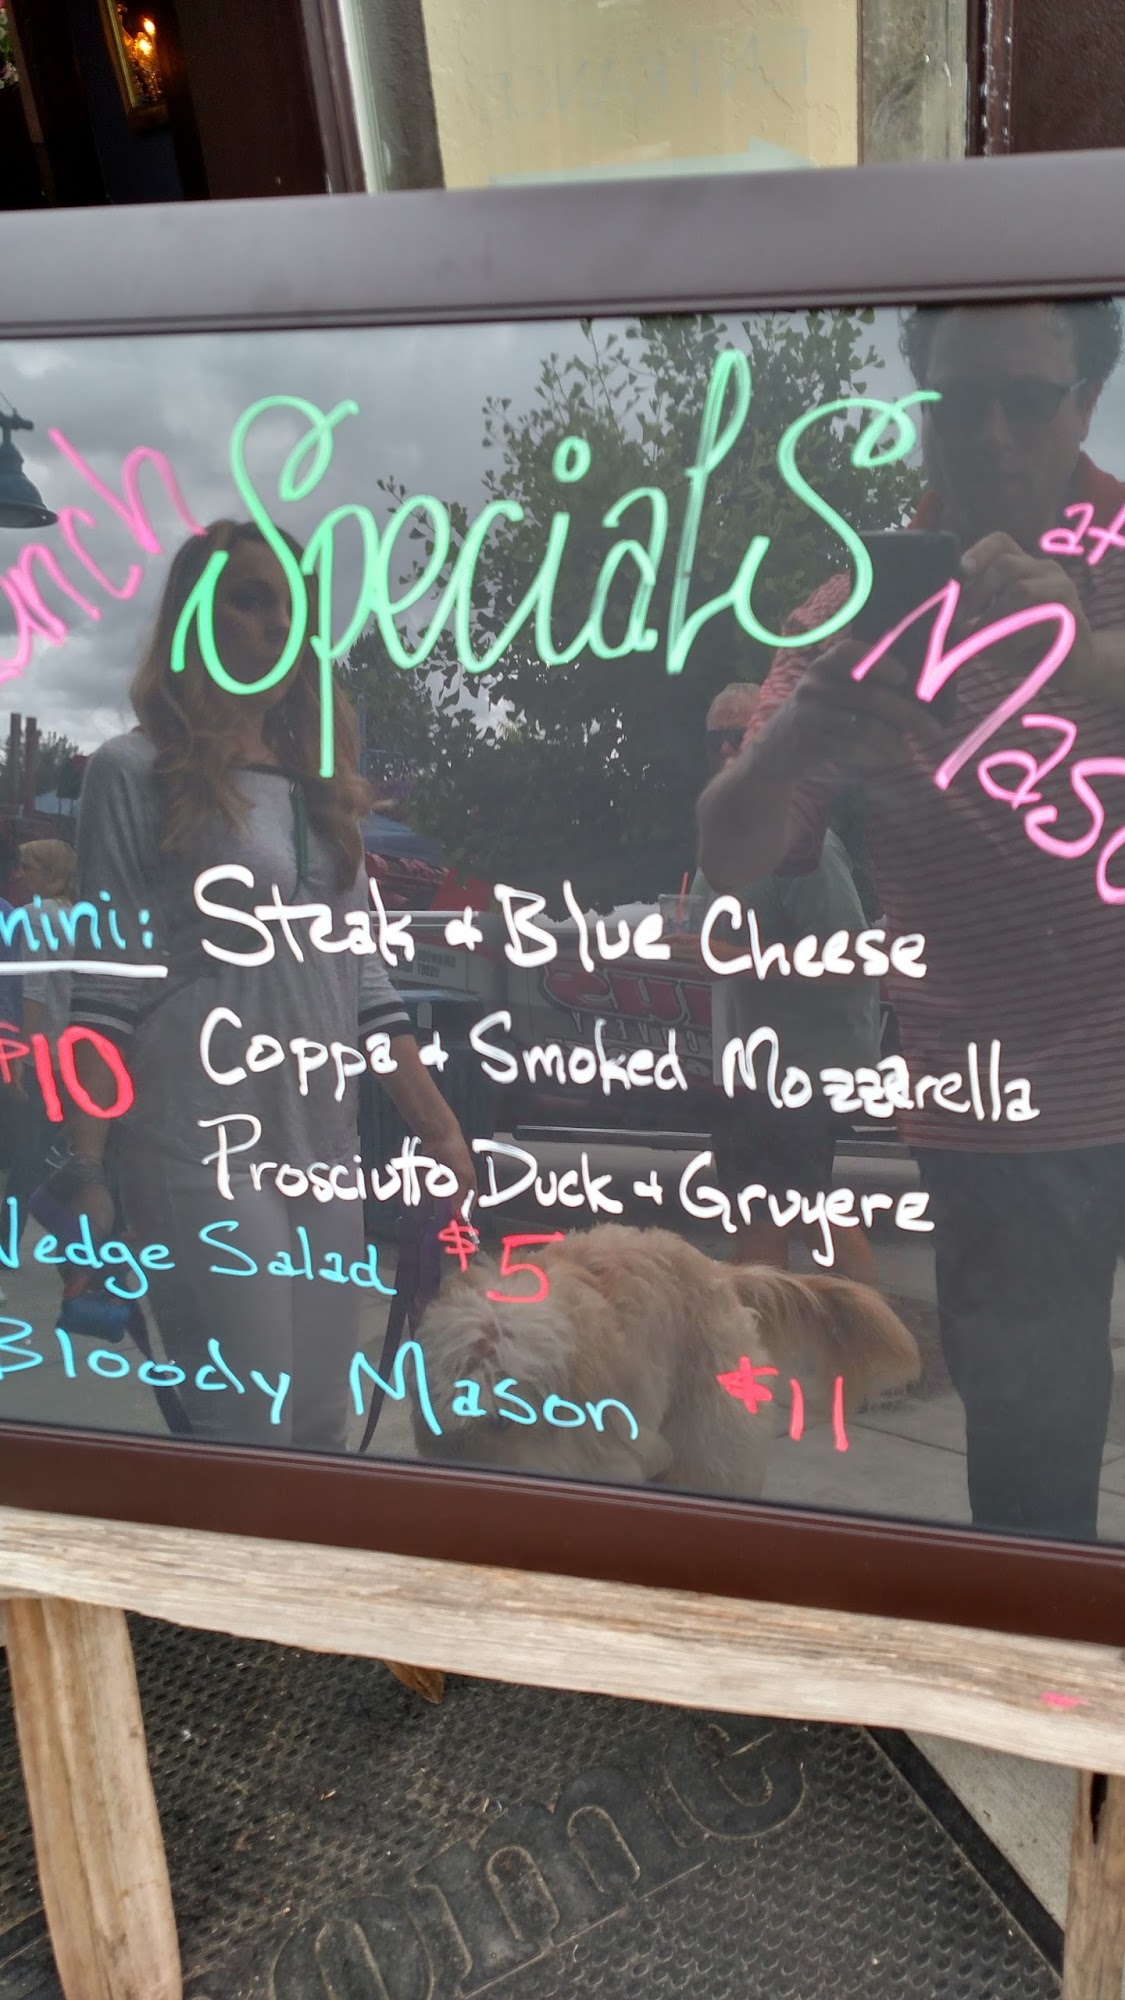 unch Specials at Maso
nini: Steak & Blue Cheese
$10 Coppa & Smoked Mozzarella
Prosciutto, Duck & Gruyere
Wedge Salad $5
Bloody Mason $11
ENTRANCE
ome